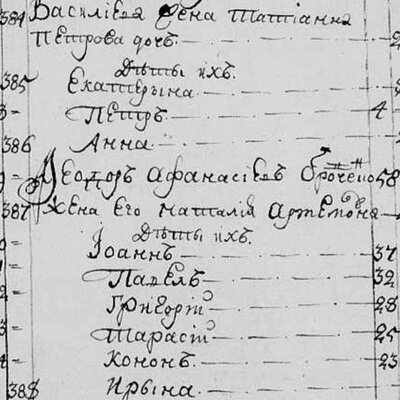 384 Василіева жена Татіанна
Петрова дочь
Дѣти ихъ
385 Екатерына
Петръ 4
386 Анна
Ѳеодоръ Афанасіевъ 58
387 Жена его Наталія Артемовна
Дѣти ихъ
Іоаннъ 37
Павелъ 32
Григорій 28
Тарасій 25
Кононъ 23
388 Ирына